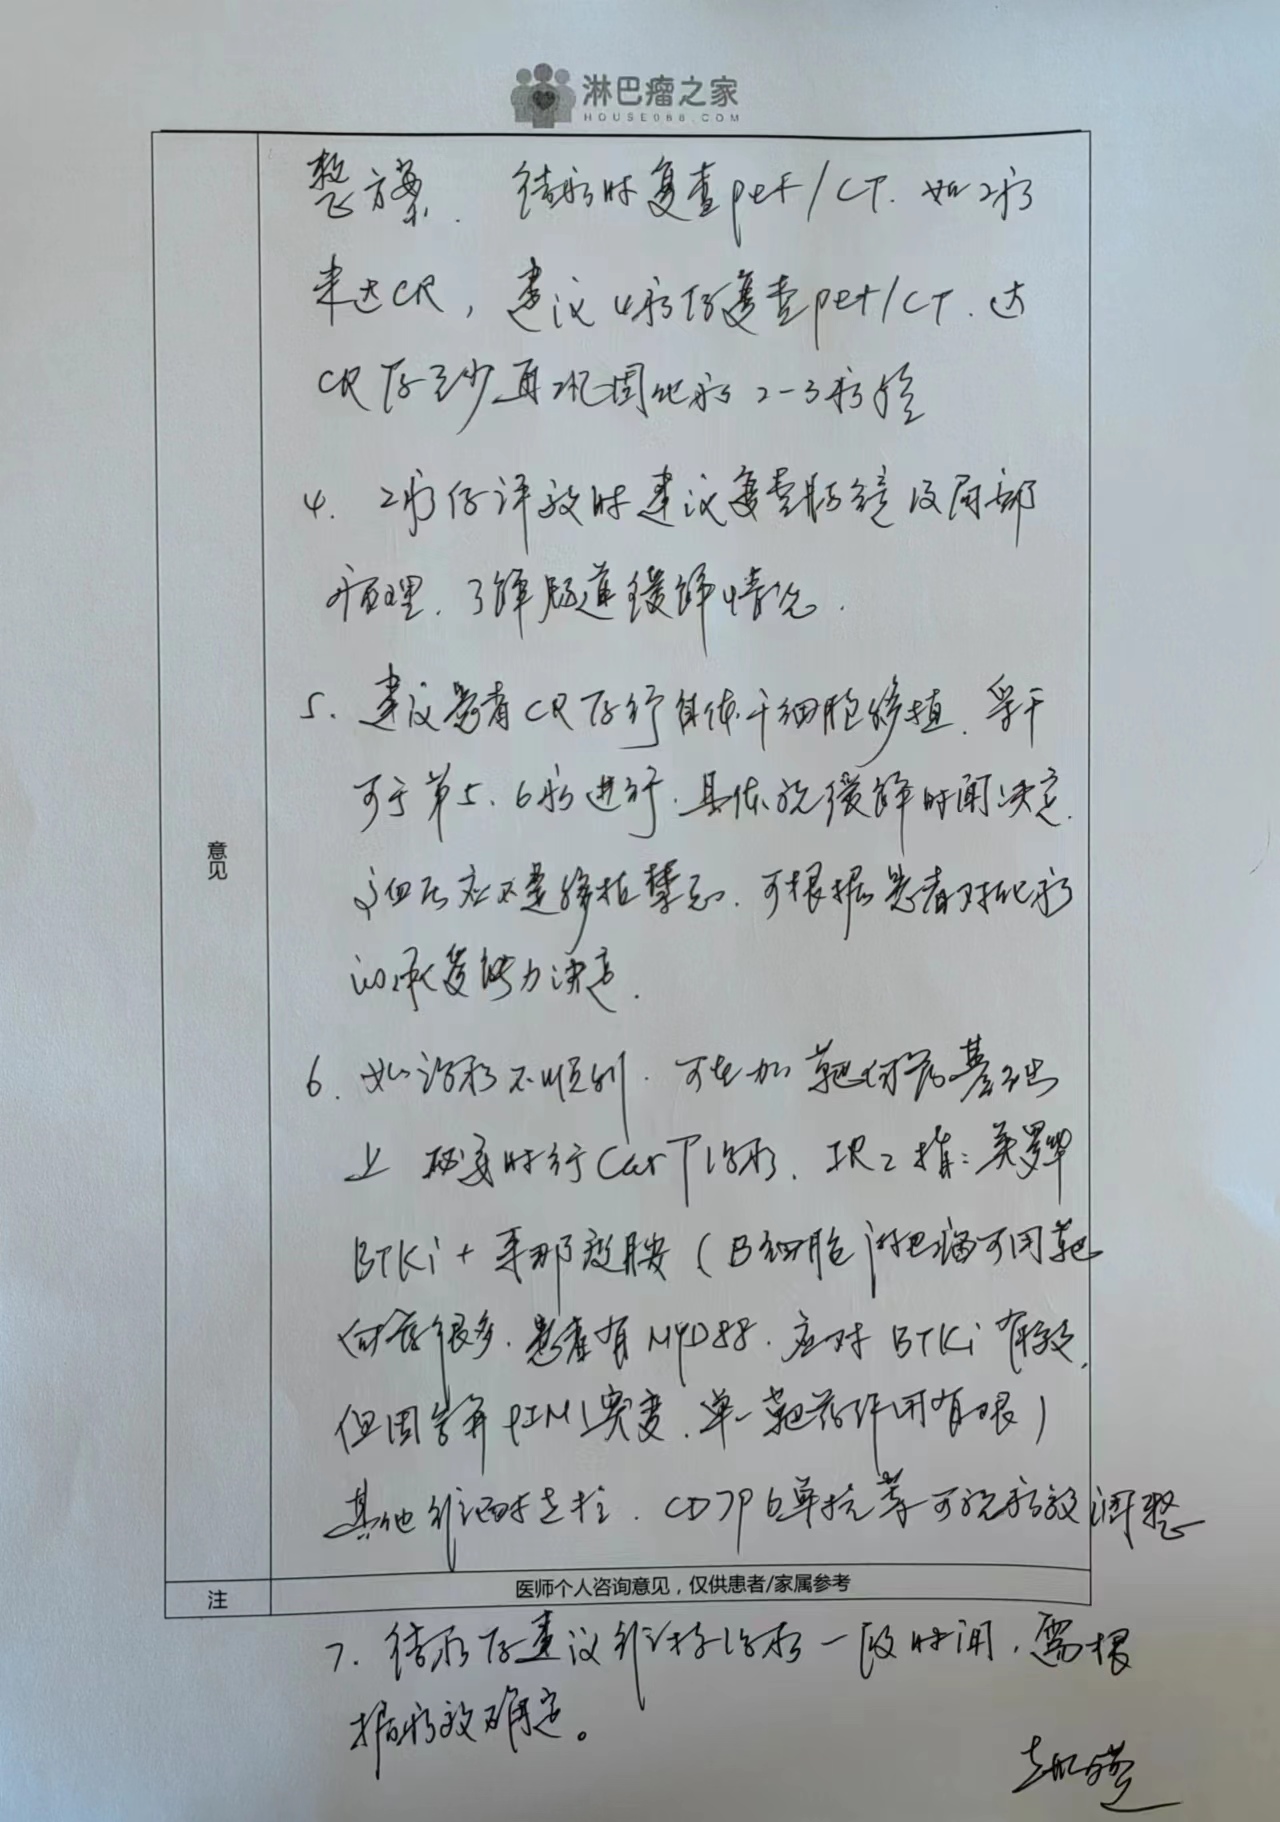 淋巴瘤之家
HOUSE086.COM
整方案. 结疗时复查pet/CT. 如2疗
未达CR, 建议4疗后复查pet/CT. 达
CR后至少再巩固化疗2-3疗
4. 2疗后评效时建议复查肠镜及局部
病理. 了解肠道缓解情况.
5. 建议患者CR后行自体干细胞移植. 采干
可于第5、6疗进行. 具体视缓解时间决定.
不是移植禁忌. 可根据患者对化疗
的承受能力决定.
6. 如治疗不顺利. 可在加靶向药基础
上 必要时行CarT治疗. 美罗华
BTKi + 来那度胺 (B细胞淋巴瘤可用靶
向药很多. 患者有MYD88. 应对BTKi有效.
但因合并PIM1突变. 单一靶药作用有限)
其他 CD79b单抗等可视疗效调整
意见
注
医师个人咨询意见，仅供患者/家属参考
7. 结疗后建议维持治疗一段时间, 需根
据疗效确定。